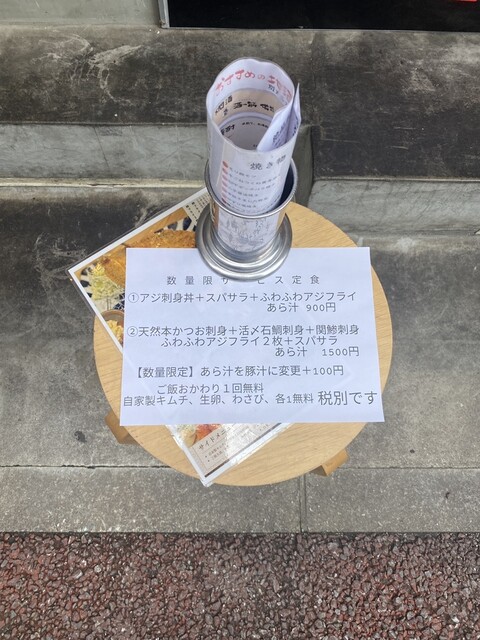 おすすめの
焼き物
数量限サービス定食
①アジ刺身丼+スパサラ+ふわふわアジフライ
あら汁 900円
②天然本かつお刺身+活〆石鯛刺身+関鯵刺身
ふわふわアジフライ2枚+スパサラ
あら汁 1500円
【数量限定】あら汁を豚汁に変更+100円
ご飯おかわり1回無料
自家製キムチ、生卵、わさび、各1無料 税別です
サイドメニ